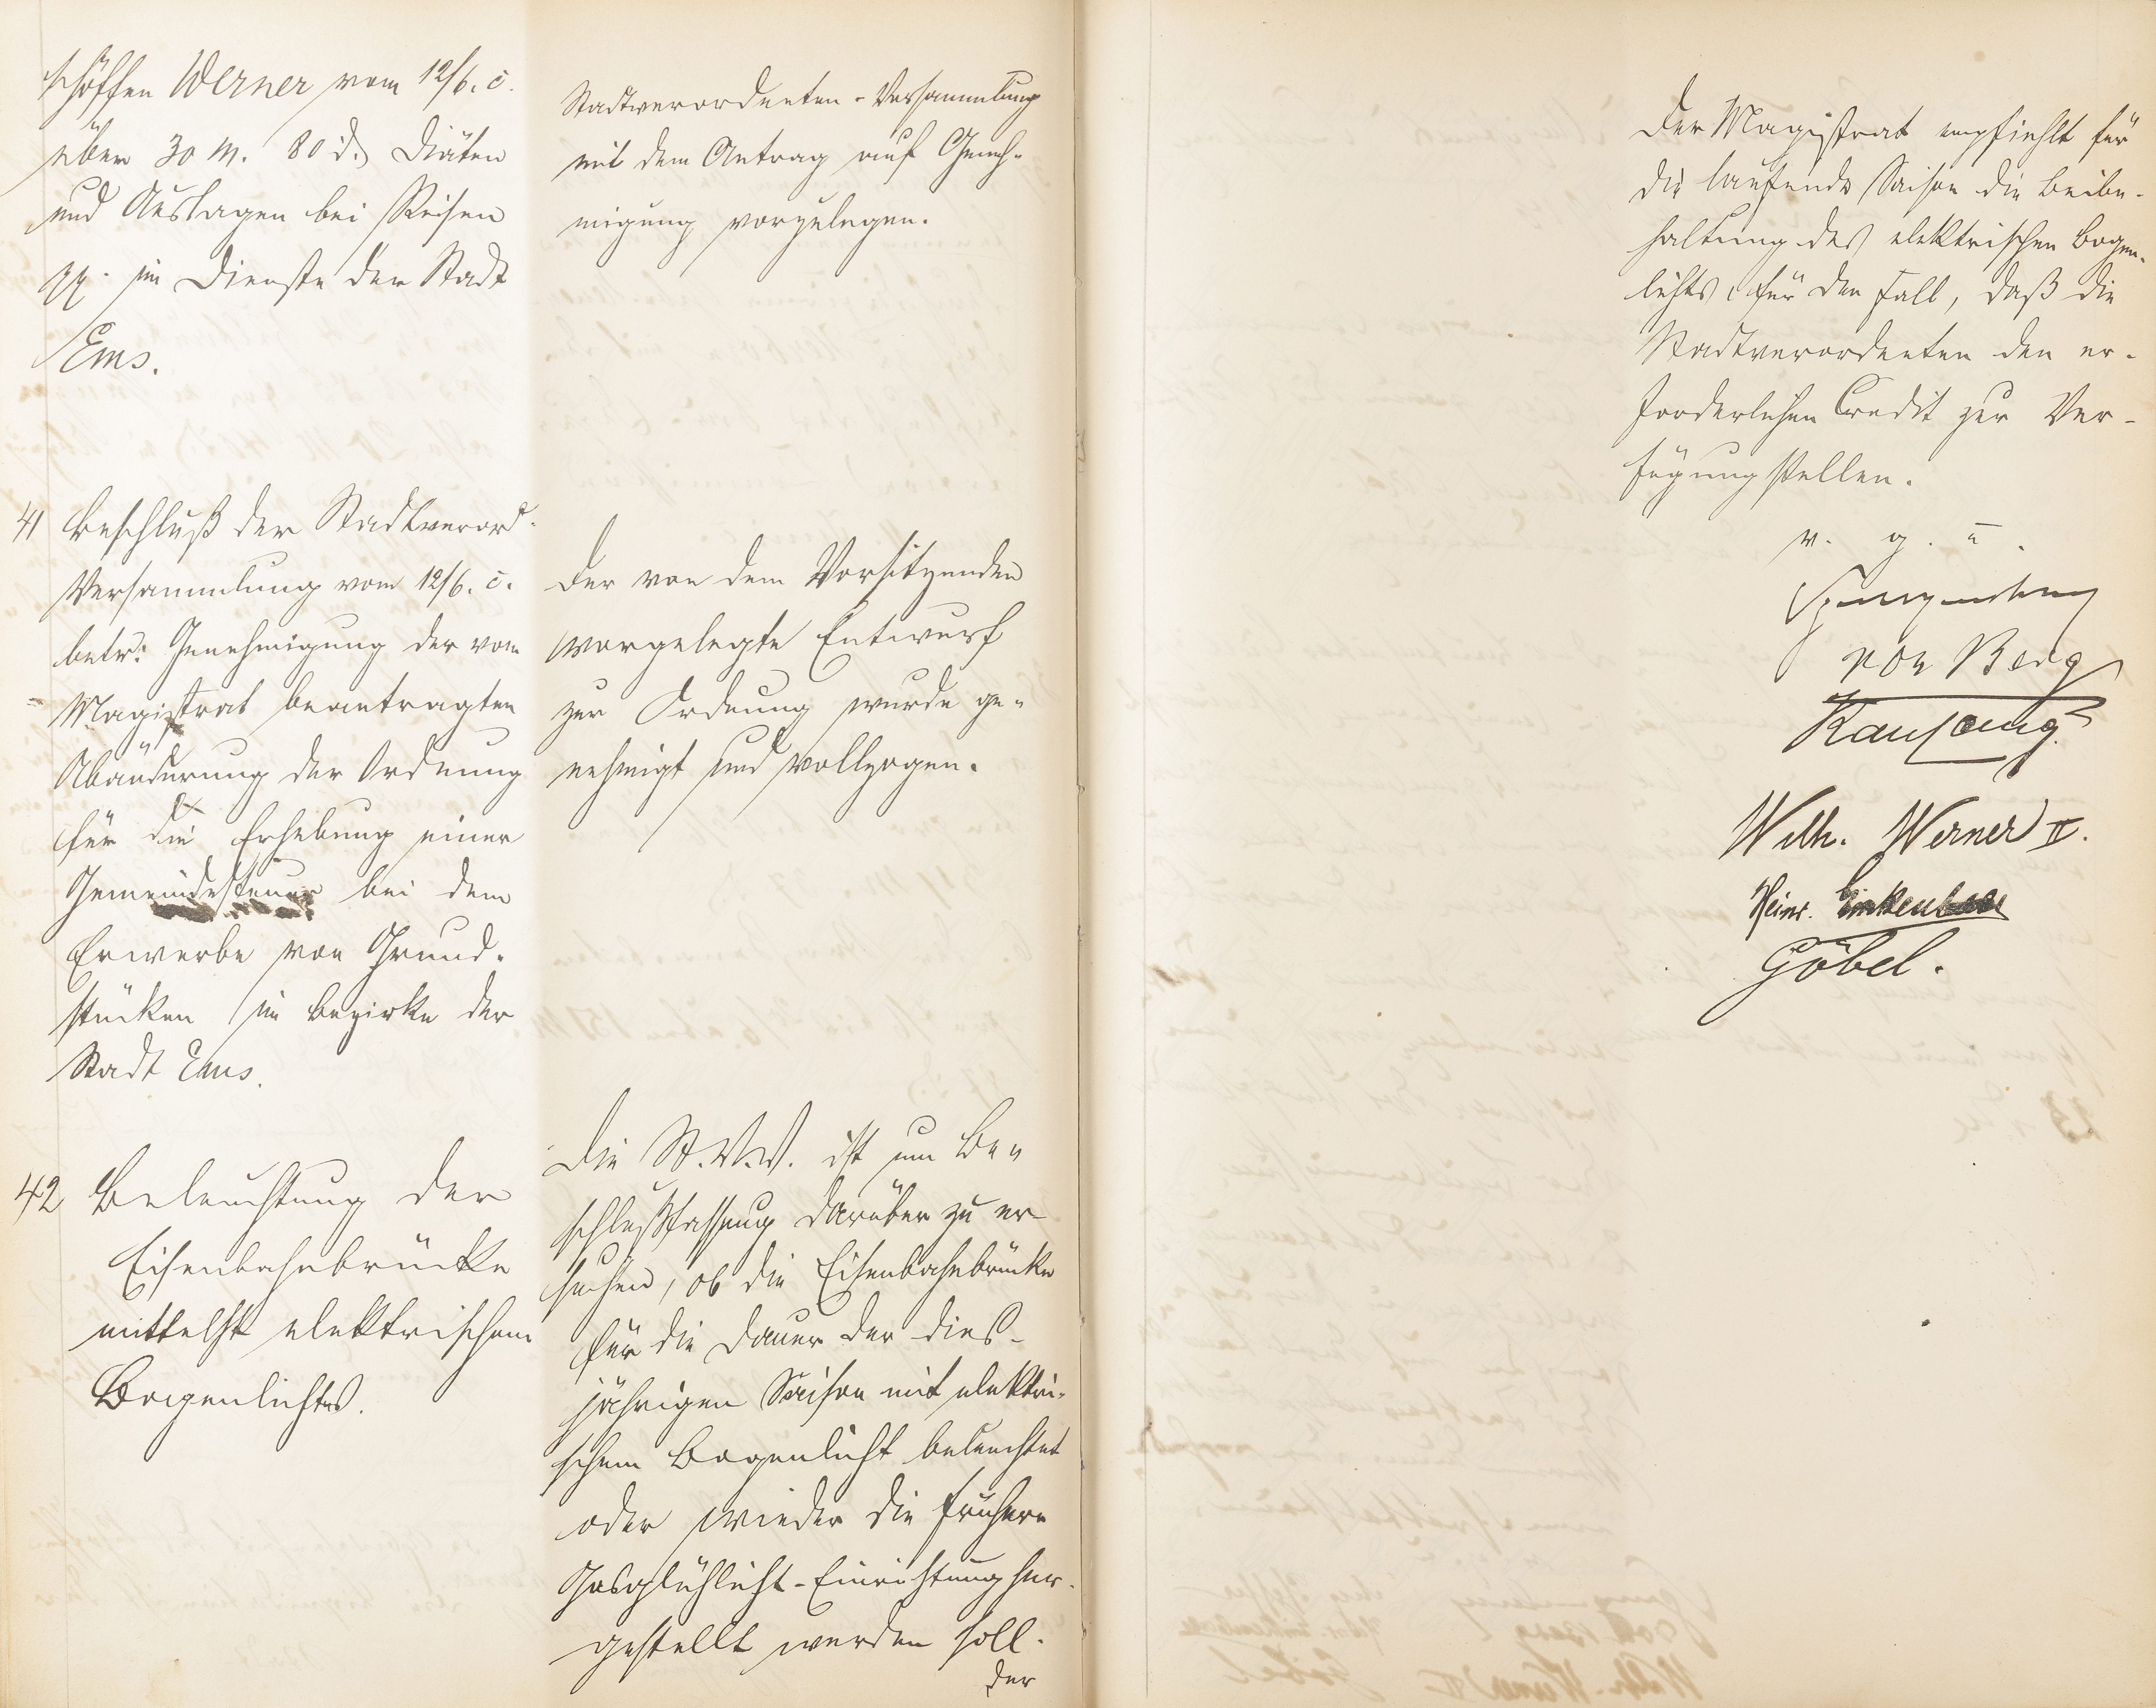 schöffen Werner vom 12/6. c.
über 30 M. 80 d. Diäten
und Auslagen bei Reisen
pp. im Dienste der Stadt
Ems.
Stadtverordneten-Versammlung
mit dem Antrag auf Geneh-
migung vorzulegen.
41 Beschluß der Stadtverord-
Versammlung vom 12/6. c.
betr: Genehmigung der vom
Magistrat beantragten
Abänderung der Ordnung
für die Erhebung einer
Gemeindesteuer bei dem
Erwerbe von Grund-
stücken im Bezirke der
Stadt Ems.
Der von dem Vorsitzenden
vorgelegte Entwurf
zur Ordnung wurde ge-
nehmigt und vollzogen.
42 Beleuchtung der
Eisenbahnbrücke
mittelst elektrischem
Bogenlichts.
Die St.V.V. ist um Be-
schlußfassung darüber zu er-
suchen, ob die Eisenbahnbrücke
für die Dauer der dies-
jährigen Saison mit elektri-
schem Bogenlicht beleuchtet
oder wieder die frühere
Gasglühlicht-Einrichtung her-
gestellt werden soll.
Der
Der Magistrat empfiehlt für
die laufende Saison die Beibe-
haltung des elektrischen Bogen-
lichts, für den Fall, daß die
Stadtverordneten den er-
forderlichen Credit zur Ver-
fügung stellen.
v. g. u.
von Berg
Wilh. Werner II.
Heinr.
Göbel.